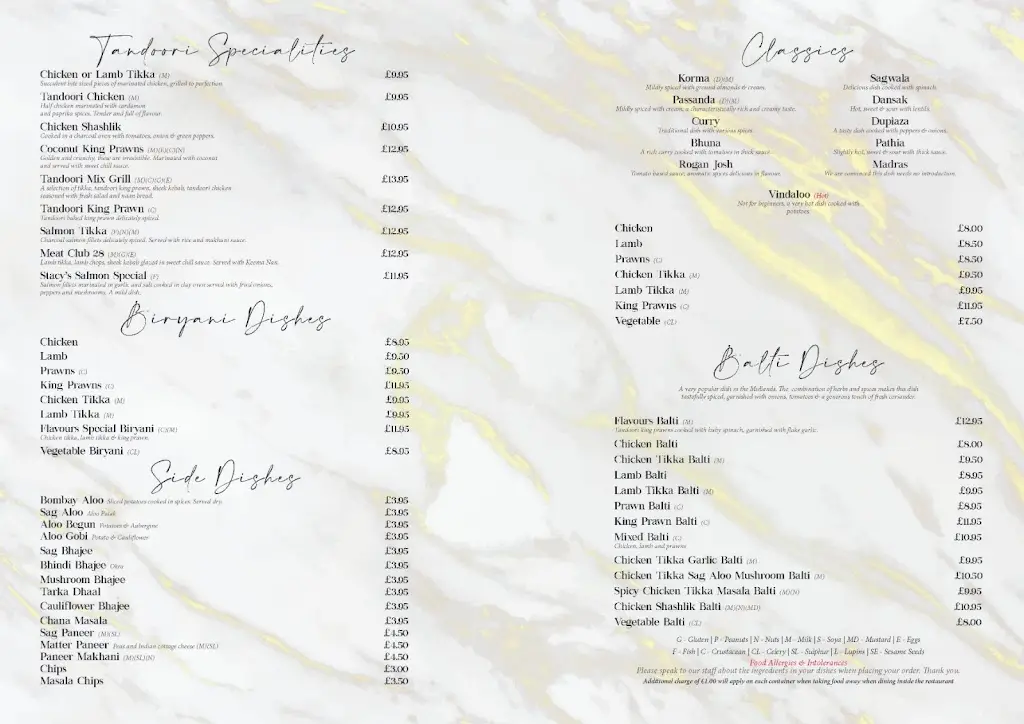 Tandoori Specialities
Chicken or Lamb Tikka (M) £9.95
Succulent bite sized pieces of marinated chicken, grilled to perfection
Tandoori Chicken (M) £9.95
Half chicken marinated with cardamon
and paprika spices. Tender and full of flavour.
Chicken Shashlik £10.95
Cooked in a charcoal oven with tomatoes, onion & green peppers.
Coconut King Prawns £12.95
Golden and crunchy, these are irresistible. Marinated with coconut
and served with sweet chill sauce.
Tandoori Mix Grill (M)(C)(G)(E) £13.95
A selection of tikka, tandoori king prawn, sheek kebab, tandoori chicken
seasoned with fresh salad and naan bread.
Tandoori King Prawn (C) £12.95
Tandoori baked king prawn delicately spiced.
Salmon Tikka (F)(D)(M) £12.95
Charcoal salmon fillets delicately spiced. Served with rice and makhani sauce.
Meat Club 28 (M)(G)(E) £12.95
Lamb tikka, lamb chops, sheek kebab glazed in sweet chill sauce. Served with Keema Nan.
Stacy's Salmon Special (F) £11.95
Salmon fillets marinated in garlic and salt cooked in clay oven served with fried onions,
peppers and mushrooms. A mild dish.
Biryani Dishes
Chicken £8.95
Lamb £9.50
Prawns (C) £9.50
King Prawns (C) £11.95
Chicken Tikka (M) £9.95
Lamb Tikka (M) £9.95
Flavours Special Biryani (C)(M) £11.95
Chicken tikka, lamb tikka & king prawn.
Vegetable Biryani (CL) £8.95
Side Dishes
Bombay Aloo Sliced potatoes cooked in spices. Served dry. £3.95
Sag Aloo Aloo Palak £3.95
Aloo Begun Potatoes & Aubergine £3.95
Aloo Gobi Potato & Cauliflower £3.95
Sag Bhajee £3.95
Bhindi Bhajee Okra £3.95
Mushroom Bhajee £3.95
Tarka Dhaal £3.95
Cauliflower Bhajee £3.95
Chana Masala £3.95
Sag Paneer (M)(SL) £4.50
Matter Paneer Peas and Indian cottage cheese (M)(SL) £4.50
Paneer Makhani (M)(SL)(N) £4.50
Chips £3.00
Masala Chips £3.50
Classics
Korma (D)(M)
Mildly spiced with ground almonds & cream.
Passanda (D)(M)
Mildly spiced with cream, a characteristically rich and creamy taste.
Curry
Traditional dish with various spices
Bhuna
A rich curry cooked with tomatoes in thick sauce
Rogan Josh
Tomato based sauce, aromatic spices delicious in flavour.
Sagwala
Delicious dish cooked with spinach.
Dansak
Hot, sweet & sour with lentils.
Dupiaza
A tasty dish cooked with peppers & onions.
Pathia
Slightly hot, sweet & sour with thick sauce.
Madras
We are convinced this dish needs no introduction.
Vindaloo (Hot)
Not for beginners, a very hot dish cooked with
potatoes.
Chicken £8.00
Lamb £8.50
Prawns (C) £8.50
Chicken Tikka (M) £9.50
Lamb Tikka (M) £9.95
King Prawns (C) £11.95
Vegetable (CL) £7.50
Balti Dishes
A very popular dish in the Midlands. The combination of herbs and spices makes this dish
tastefully spiced, garnished with onions, tomatoes & a generous touch of fresh coriander
Flavours Balti (M) £12.95
Tandoori king prawns cooked with baby spinach, garnished with flake garlic.
Chicken Balti £8.00
Chicken Tikka Balti (M) £9.50
Lamb Balti £8.95
Lamb Tikka Balti (M) £9.95
Prawn Balti (C) £8.95
King Prawn Balti (C) £11.95
Mixed Balti (C) £10.95
Chicken, lamb and prawns
Chicken Tikka Garlic Balti (M) £9.95
Chicken Tikka Sag Aloo Mushroom Balti (M) £10.50
Spicy Chicken Tikka Masala Balti (M)(N) £9.95
Chicken Shashlik Balti (M)(N)(MD) £10.95
Vegetable Balti (CL) £8.00
G - Gluten | P - Peanuts | N - Nuts | M - Milk | S - Soya | MD - Mustard | E - Eggs
F - Fish | C - Crustacean | CL - Celery | SL - Sulphur | L - Lupins | SE - Sesame Seeds
Food Allergies & Intolerances
Please speak to our staff about the ingredients in your dishes when placing your order. Thank you.
Additional charge of £1.00 will apply on each container when taking food away when dining inside the restaurant